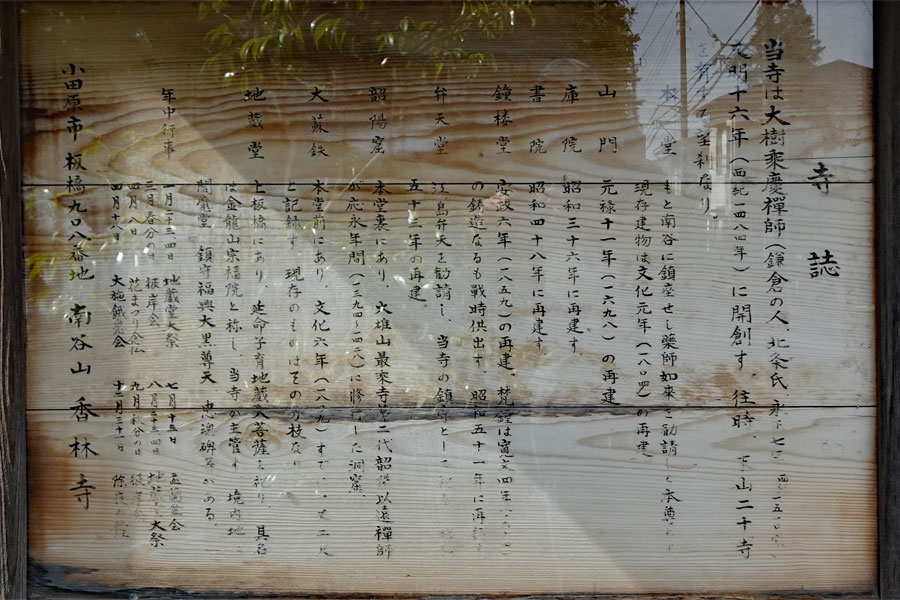 寺誌
当寺は大樹乗慶禅師(鎌倉の人、北条氏
文明十六年(西紀一四八四年)に開創す。往時、末山二十寺
を有する名刹なり。
本堂 もと南谷に鎮座せし薬師如来を勧請し本尊
現存建物は文化元年(一八〇四)の再建
山門 元禄十一年(一六九八)の再建
庫院 昭和三十六年に再建す。
書院 昭和四十八年に再建す
鐘楼堂 安政六年(一八五九)の再建、梵鐘は寛文四年
の鋳造なるも戦時供出す、昭和五十一年に再
弁天堂 江ノ島弁天を勧請し、当寺の鎮守として
五十二年の再建
韶陽窟 本堂裏にあり、大雄山最乗寺第二代韶陽以遠禅師
が応永年間(一三九四〜一四二八)に勝
した洞窟。
大蘇鉄 本堂前にあり、文化六年(一八〇九)すでに
と記録す 現存のものはその分枝なり
地蔵堂 上板橋にあり、延命子育地蔵大菩薩を祀り、其名
は金龍山宗福院と称し、当寺が主管す 境内地
閻魔堂 鎮守福興大黒尊天 忠魂碑等がある。
年中行事 一月二十三四日 地蔵堂大祭 七月十三日 盂蘭盆会
三月春分の日 彼岸会 八月二十三四日 地蔵堂大祭
四月八日 花まつり 九月秋分の日 彼岸会
四月十八日 大施餓鬼会 十二月三十一日 除夜の鐘
小田原市板橋九〇八番地 南谷山香林寺